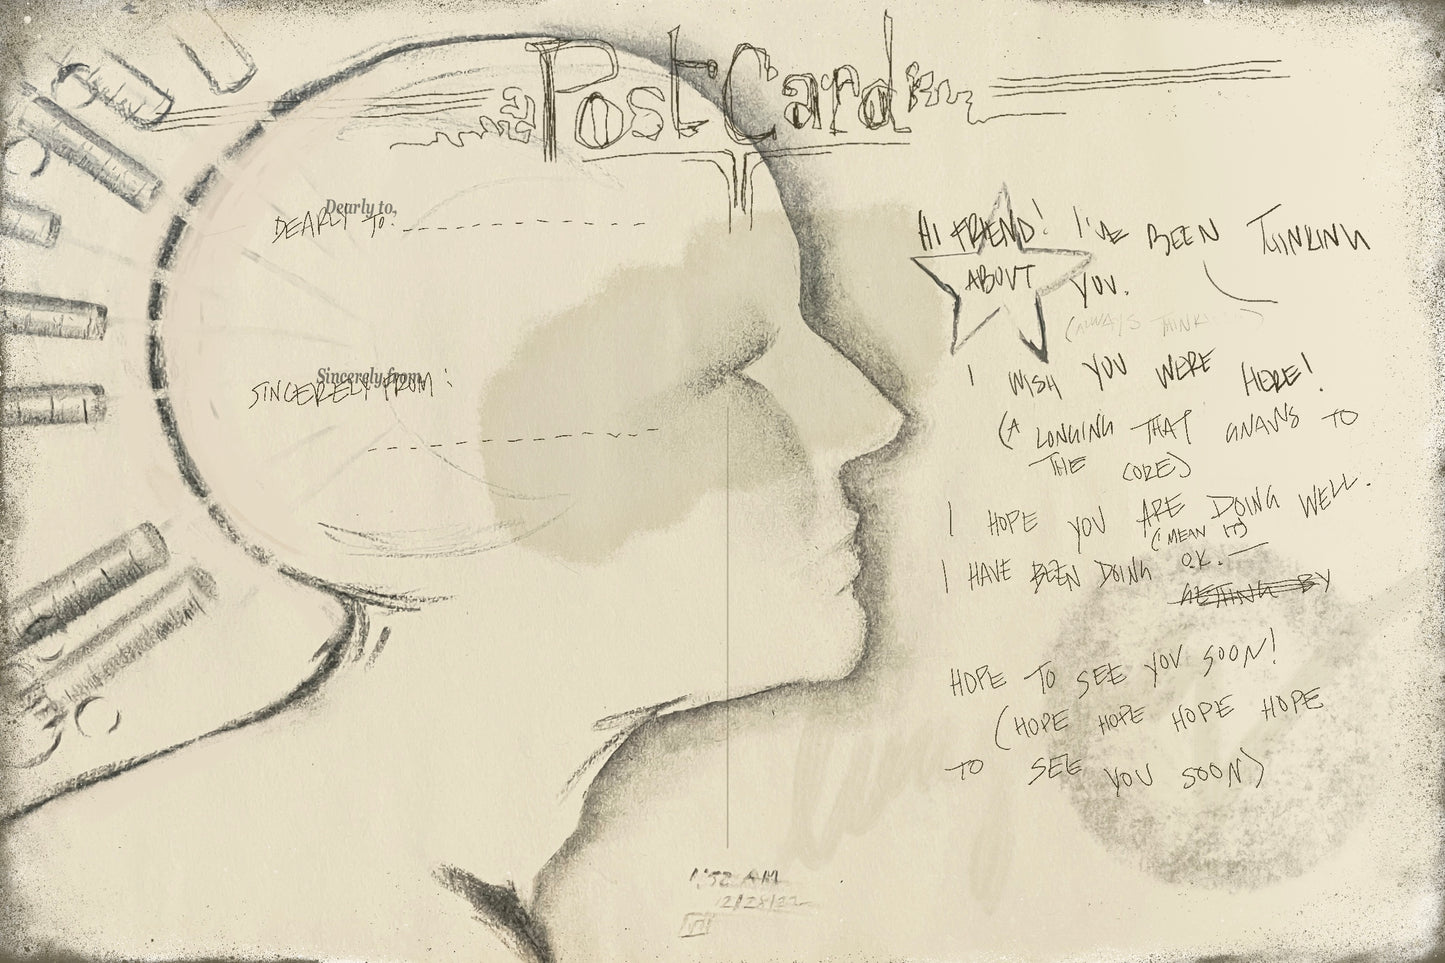 a Post Card in
Dearly to,
DEARLY TO:
Sincerely from,
SINCERELY FROM:
HI FRIEND! I'VE BEEN THINKING
ABOUT YOU.
(ALWAYS THINKING)
I WISH YOU WERE HERE!
(A LONGING THAT GNAWS TO
THE CORE)
I HOPE YOU ARE DOING WELL.
(I MEAN IT)
I HAVE BEEN DOING OK.—
GETTING BY
HOPE TO SEE YOU SOON!
(HOPE HOPE HOPE HOPE
TO SEE YOU SOON)
1:52 AM
12/28/22